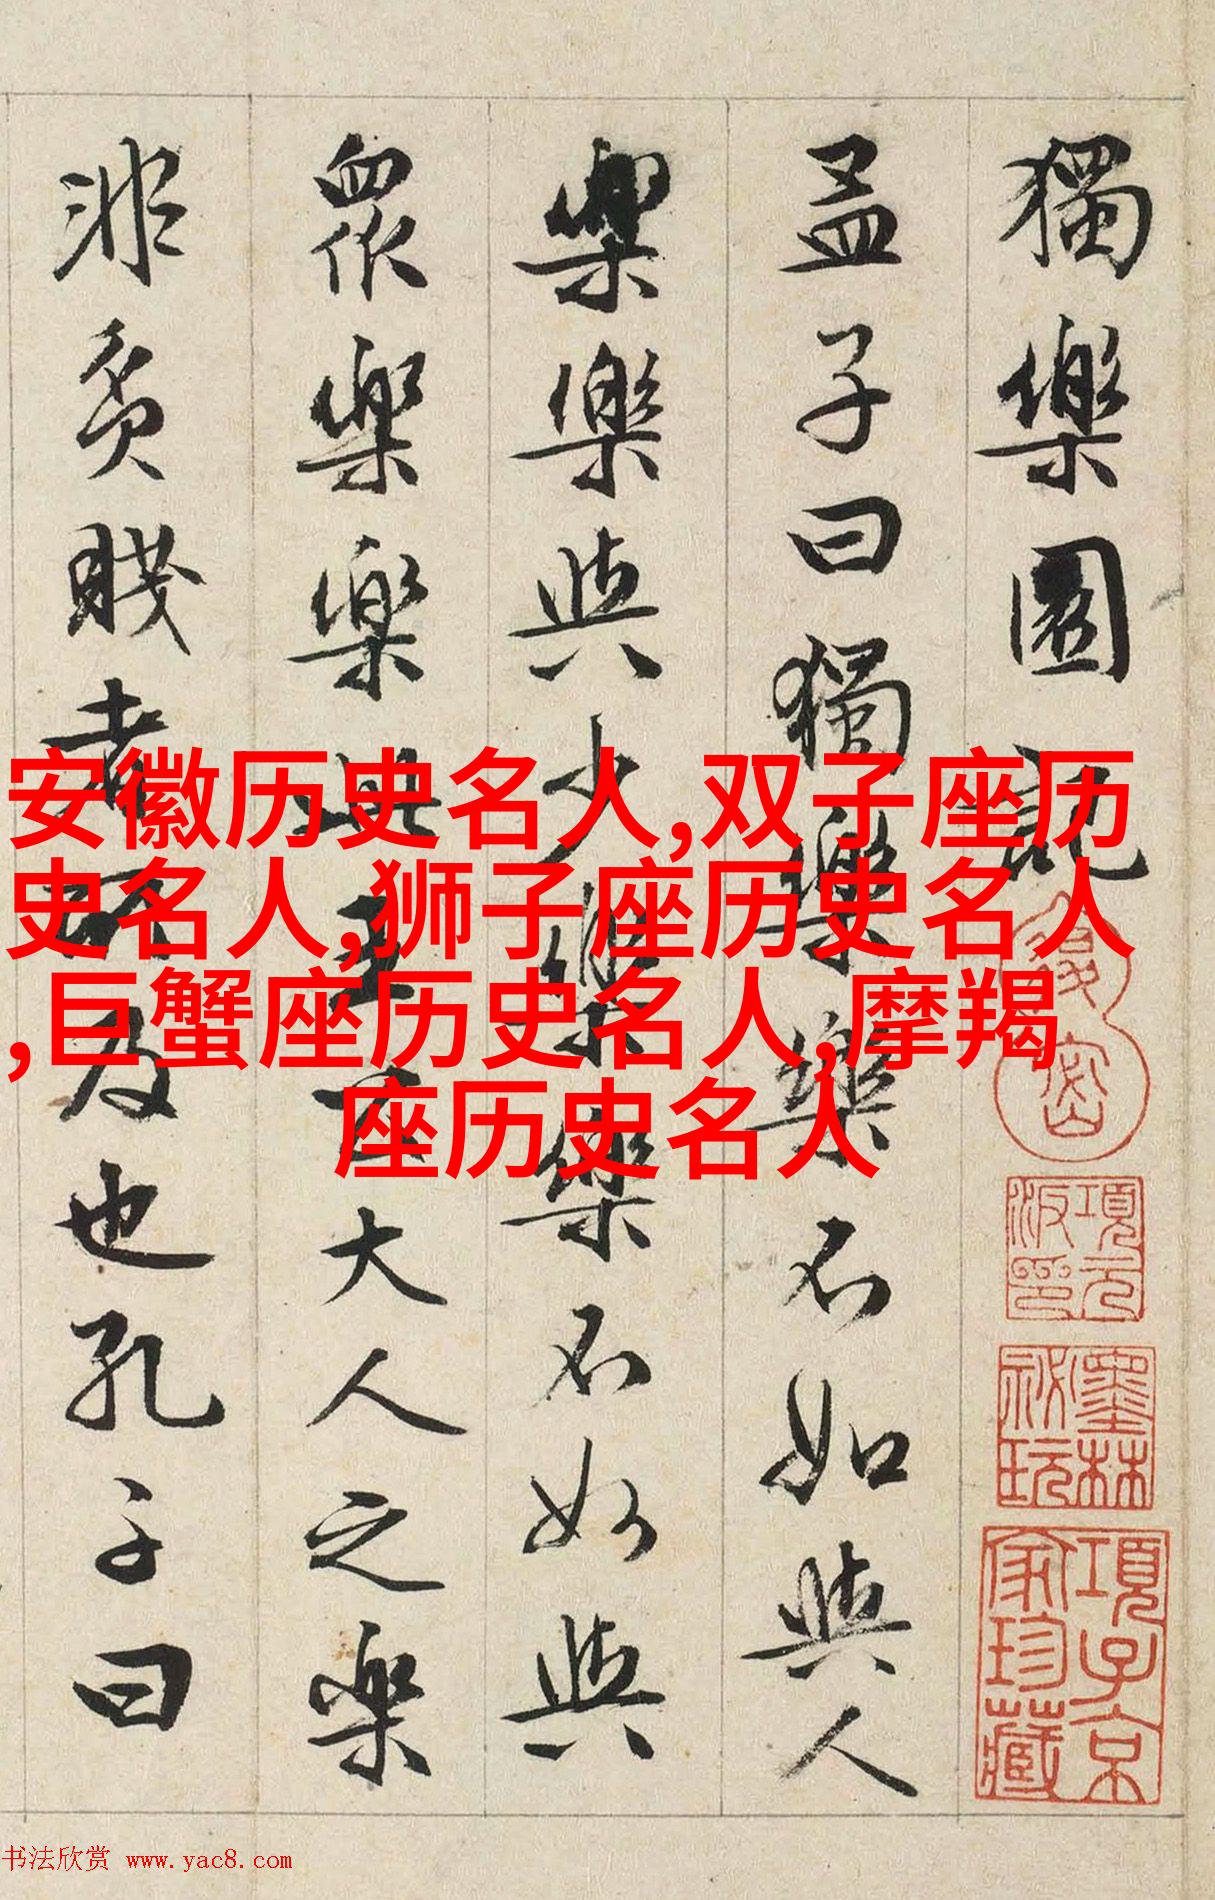 獨樂園記
孟子曰獨樂樂不如與人
樂樂與少樂樂不如與
眾樂樂此王公大人之樂
非貧賤者所及也孔子曰
安徽历史名人,双子座历
史名人,狮子座历史名人
,巨蟹座历史名人,摩羯
座历史名人
項元
汳印
墨林
祕玩
項子京
家珍藏
书法欣赏 www.yac8.com